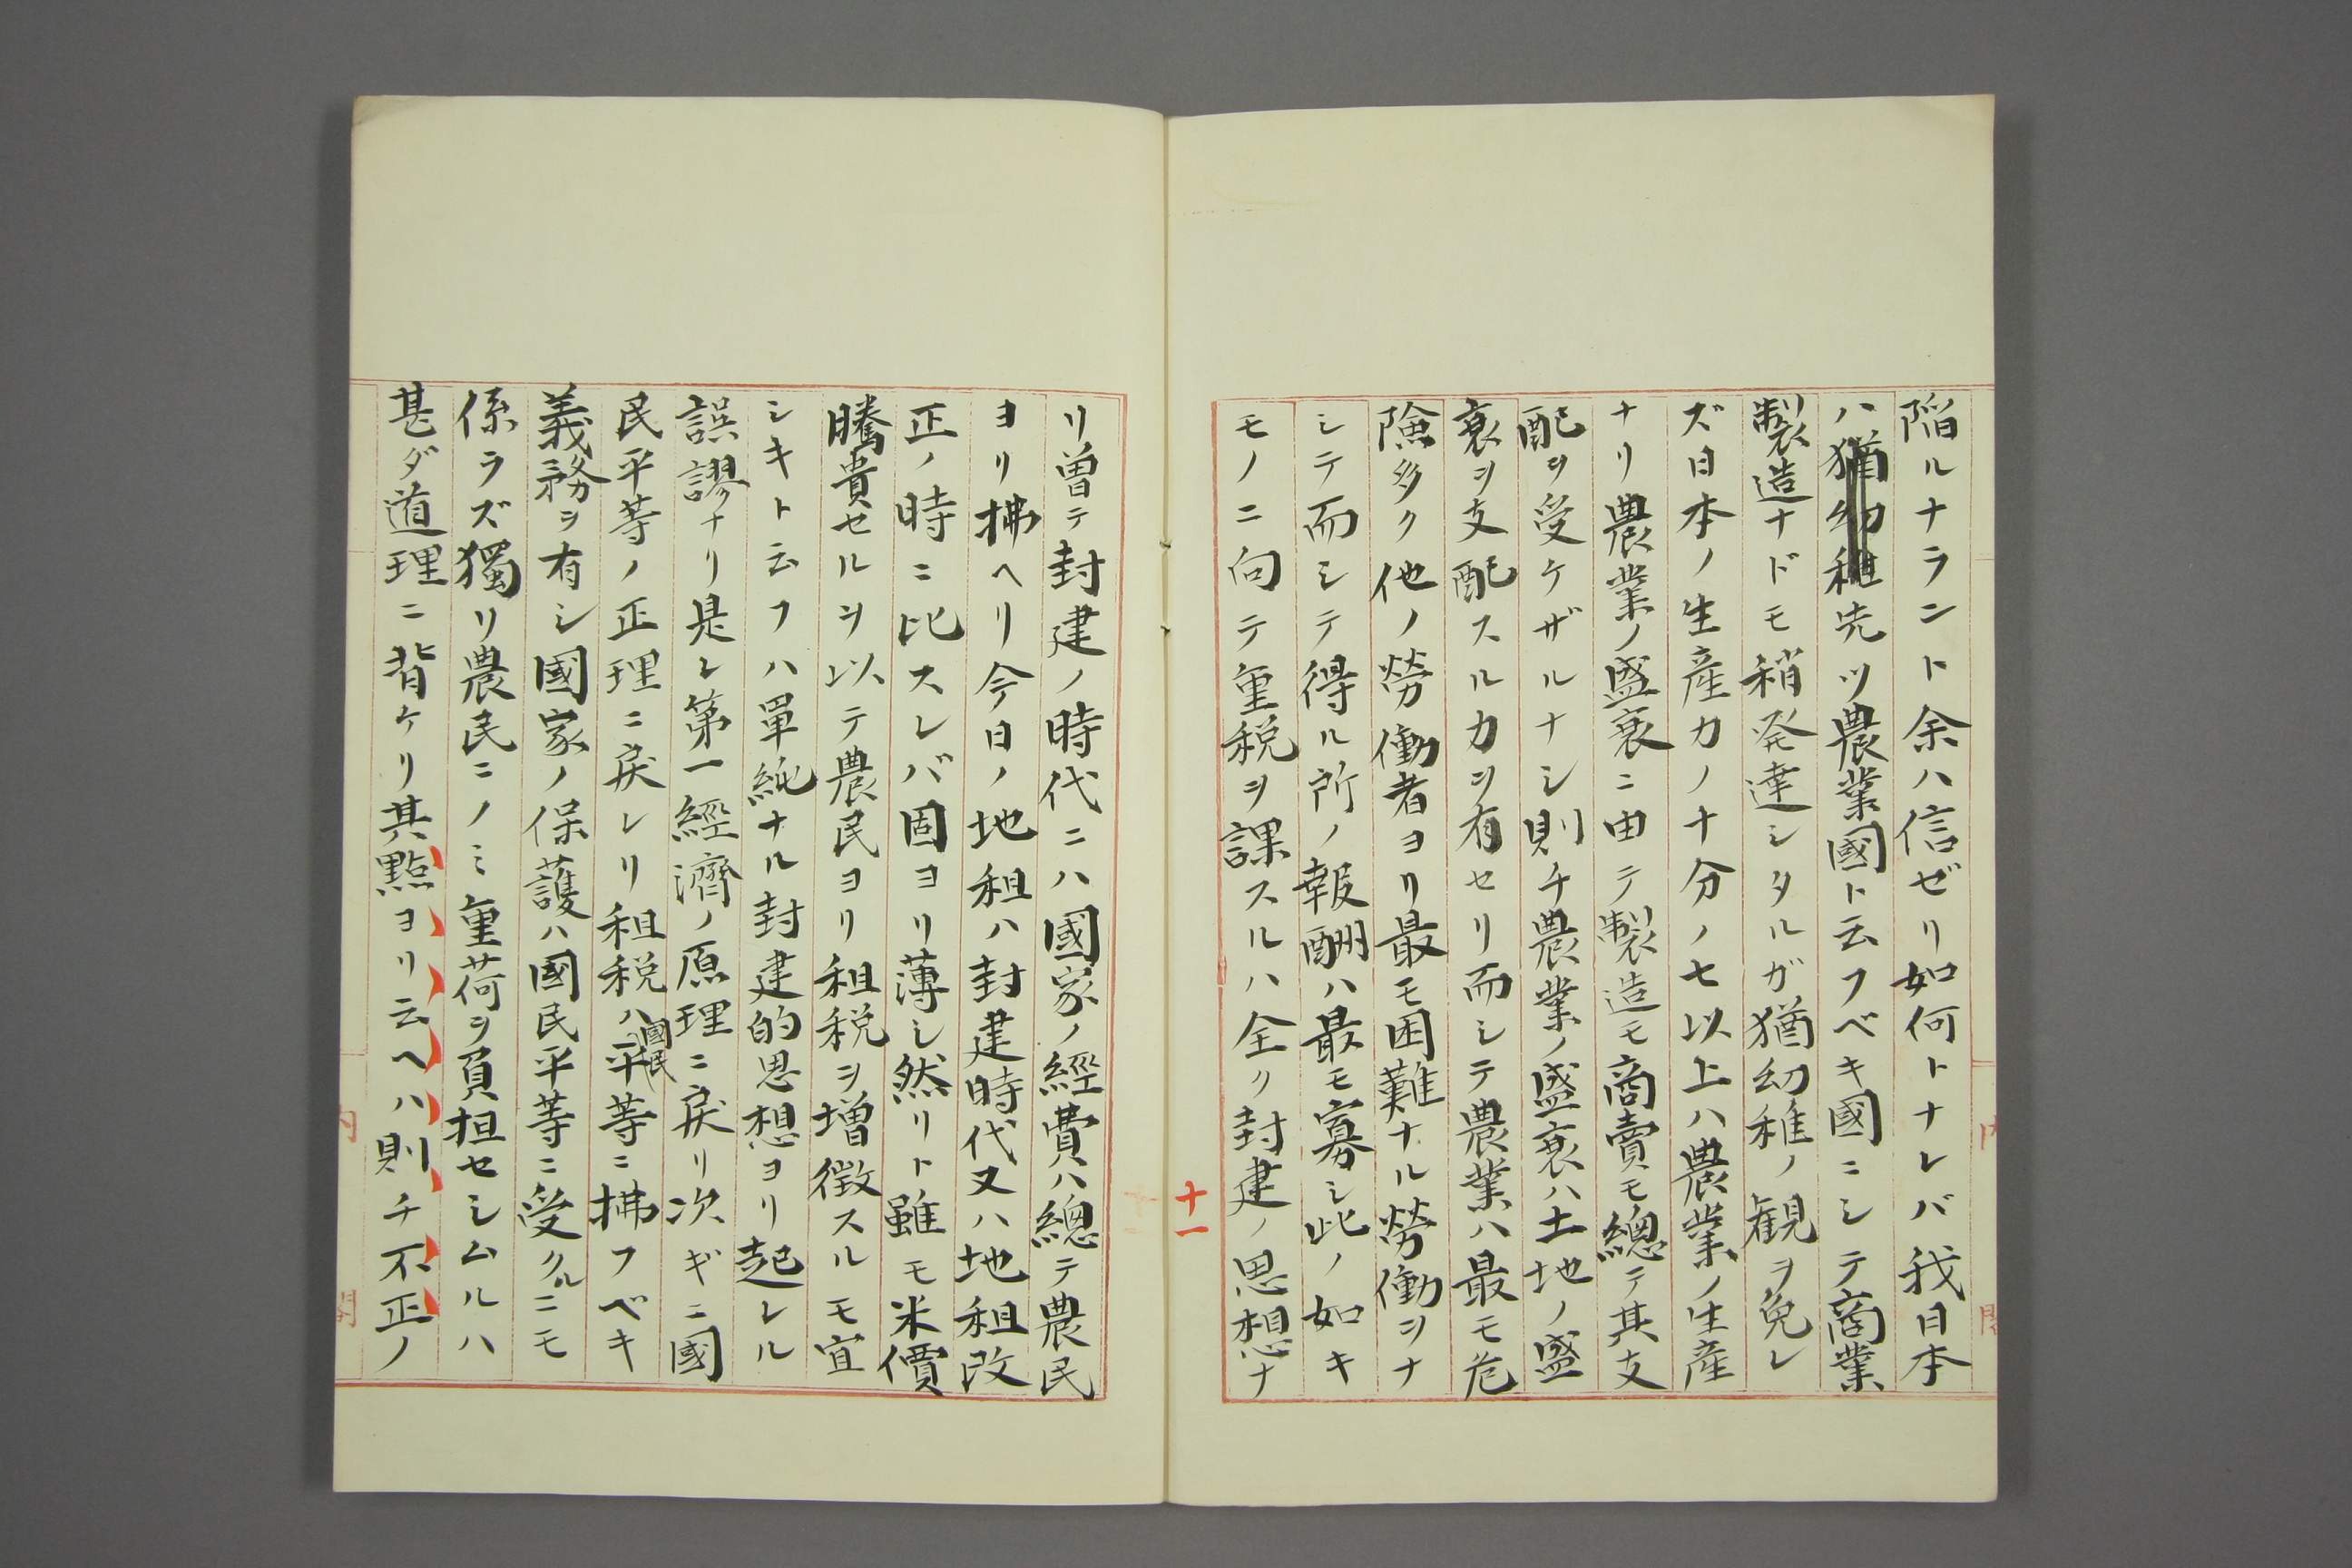 陥ルナラント余ハ信ゼリ如何トナレバ我日本
ハ猶幼稚先ツ農業國ト云フベキ國ニシテ商業
製造ナドモ稍発達シタルガ猶幼稚ノ観ヲ免レ
ズ日本ノ生産力ノ十分ノ七以上ハ農業ノ生産
ナリ農業ノ盛衰ニ由テ製造モ商賣モ總テ其支
配ヲ受ケザルナシ則チ農業ノ盛衰ハ土地ノ盛
衰ヲ支配スル力ヲ有セリ而シテ農業ハ最モ危
険多ク他ノ勞働者ヨリ最モ困難ナル勞働ヲナ
シテ而シテ得ル所ノ報酬ハ最モ寡シ此ノ如キ
モノニ向テ重税ヲ課スルハ全ク封建ノ思想ナ
十一
リ曽テ封建ノ時代ニハ國家ノ經費ハ總テ農民
ヨリ拂ヘリ今日ノ地租ハ封建時代又ハ地租改
正ノ時ニ比スレバ固ヨリ薄シ然リト雖モ米價
騰貴セルヲ以テ農民ヨリ租税ヲ増徴スルモ宜
シキト云フハ單純ナル封建的思想ヨリ起レル
誤謬ナリ是レ第一經濟ノ原理ニ戻リ次ギニ國
民平等ノ正理ニ戻レリ租税ハ國民平等ニ拂フベキ
義務ヲ有シ國家ノ保護ハ國民平等ニ受クルニモ
係ラズ獨リ農民ニノミ重荷ヲ負担セシムルハ
甚ダ道理ニ背ケリ其點ヨリ云ヘハ則チ不正ノ
内閣